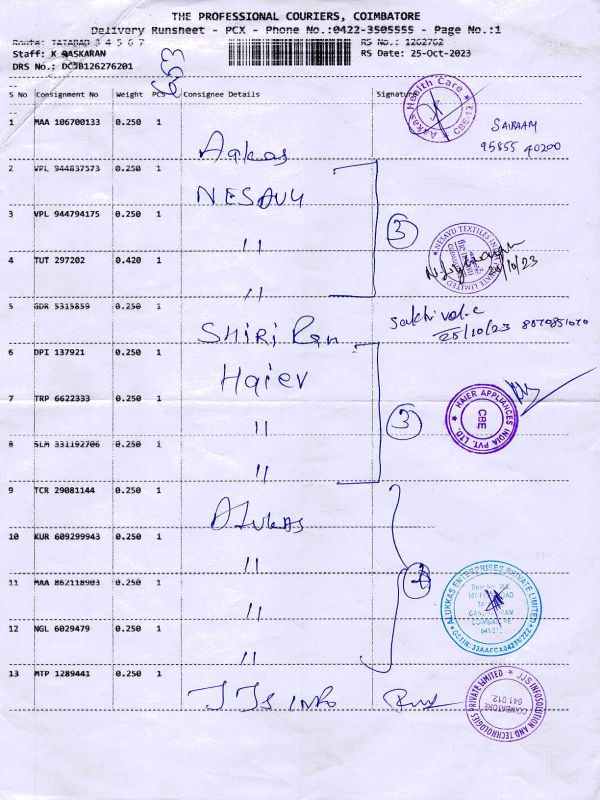 THE PROFESSIONAL COURIERS, COIMBATORE
Delivery Runsheet - PCX - Phone No.:0422-3505555 - Page No.:1
Route: TATABAD 3 4 5 6 7
RS No.: 1262762
Staff: K BASKARAN
RS Date: 25-Oct-2023
DRS No.: DCJB126276201
S No Consignment No Weight PCS Consignee Details Signature
Aakas Health Care CBE-12
1 MAA 106700133 0.250 1
SAIRAAM
95855 40200
Aakas
2 VPL 944837573 0.250 1
NESAVU
3 VPL 944794175 0.250 1
"
3
NESAYU TEXTILES INDIA PRIVATE LIMITED
25/10/23
4 TUT 297202 0.420 1
"
5 GDR 5315859 0.250 1
SHIRI Ram
Sakthivel.c
25/10/23
6 DPI 137921 0.250 1
Haier
7 TRP 6622333 0.250 1
"
3
HAIER APPLIANCES INDIA PVT. LTD.
CBE
8 SLM 331192706 0.250 1
"
9 TCR 29081144 0.250 1
ALUKAS
10 KUR 609299943 0.250 1
"
11 MAA 862118903 0.250 1
"
4
ALUKKAS ENTERPRISES PRIVATE LIMITED
COIMBATORE
641 012
12 NGL 6029479 0.250 1
"
13 MTP 1289441 0.250 1
JJS INFO
JJS INFOSOLUTION AND TECHNOLOGIES PRIVATE LIMITED
COIMBATORE
641 012.